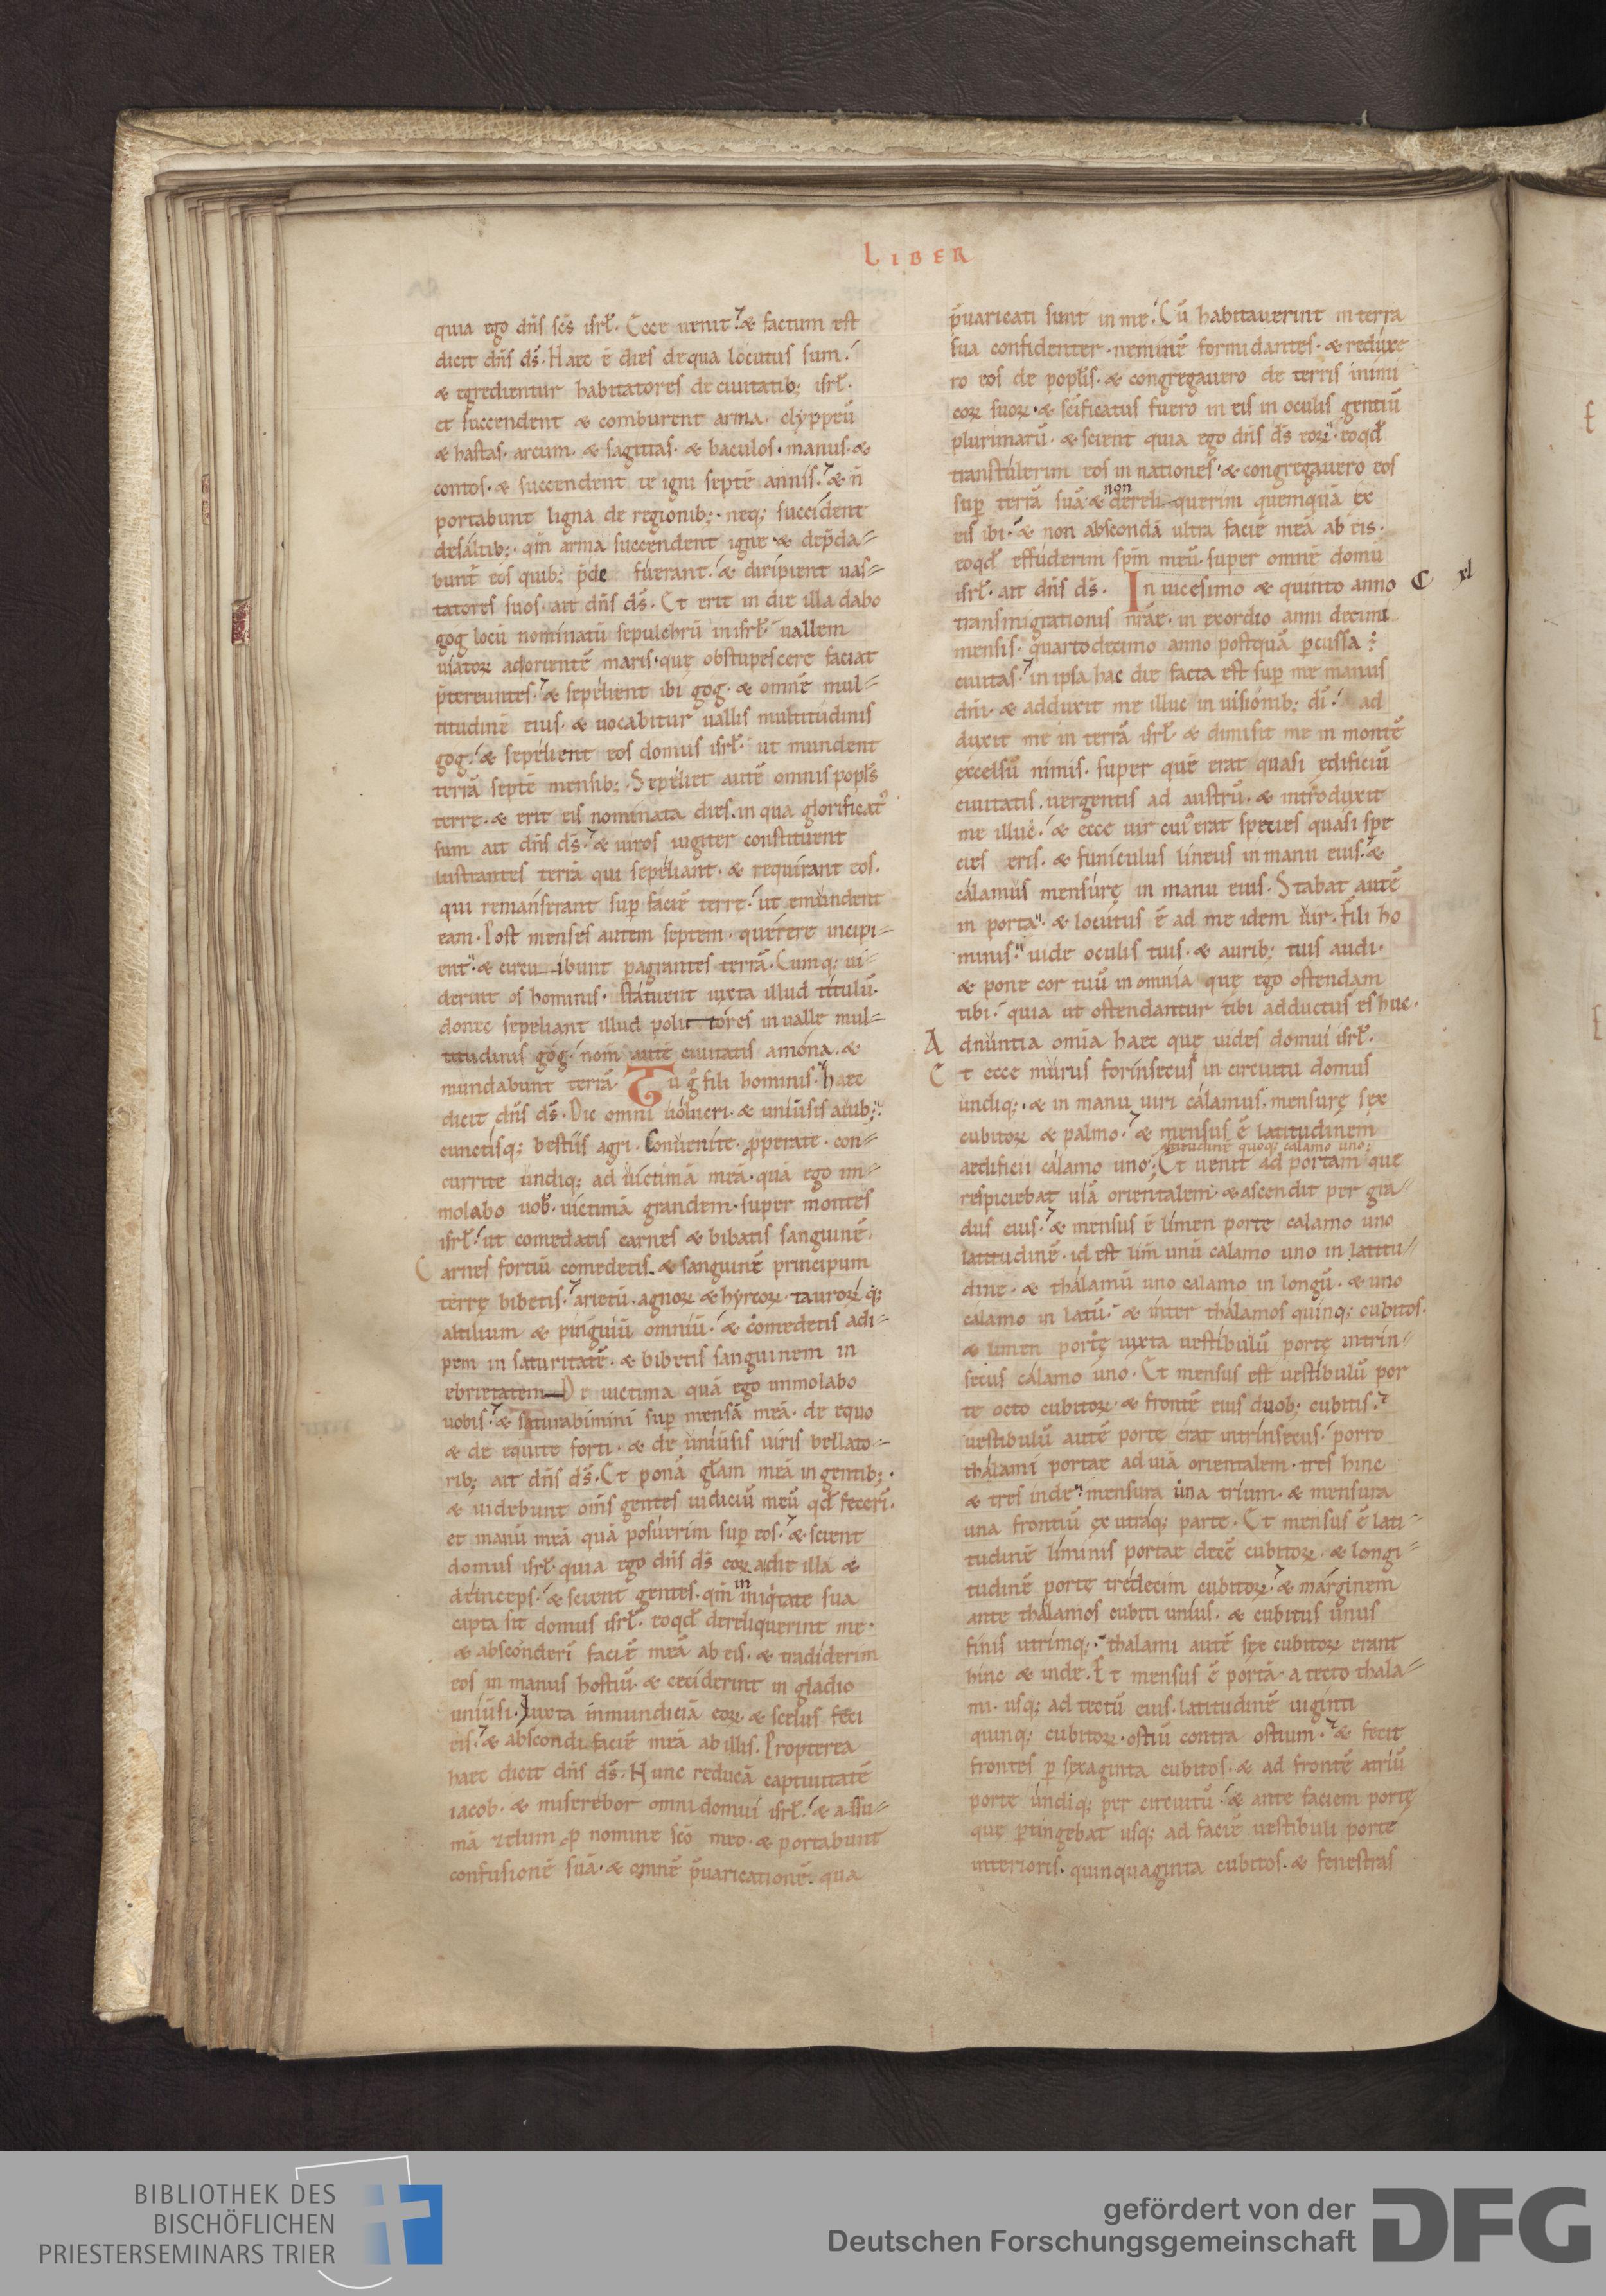 LIBER
quia ego dñs sc̄s isrl̄. Ecce uenit. & factum est
dicit dñs ds̄. Haec ē dies de qua locutus sum.
& egredientur habitatores de ciuitatib; isrl̄.
et succendent & comburent arma. clyppeū
& hastas. arcum. & sagittas. & baculos. manus. &
contos. & succendent te igni septē annis. & ñ
portabunt ligna de regionib;. neq; succident
desaltib;. qm̄ arma succendent igne. & dep̄da-
bunt eos quib; p̄de fuerant. & diripient uas-
tatores suos. ait dñs ds̄. Et erit in die illa dabo
gog locū nominatū sepulchrū in isrl̄. uallem
uiatoꝝ ad orientē maris. quę obstupescere faciat
p̄tereuntes. & sepelient ibi gog. & omnē mul-
titudinē eius. & uocabitur uallis multitudinis
gog. & sepelient eos domus isrl̄. ut mundent
terrā septē mensib;. Sepeliet autē omnis popl̄s
terre. & erit eis nominata dies. in qua glorificat᷒
sum ait dñs ds̄. & uiros iugiter constituent
lustrantes terrā qui sepeliant. & requirant eos.
qui remanserant sup̄ faciē terre. ut emundent
eam. Post menses autem septem. querere incipi-
ent. & circu ibunt pagrantes terrā. Cumq; ui-
derint os hominis. statuent iuxta illud titulū.
donec sepeliant illud polli tores in ualle mul-
titudinis gog. nom̄ autē ciuitatis amona. &
mundabunt terrā. Tu g̊ fili hominis. haec
dicit dñs ds̄. Dic omni uolucri. & uniūsis auib;.
cunctisq; bestiis agri. Conuenite. ꝓperate. con-
currite undiq; ad uictimā meā. quā ego im-
molabo uob̄. uictimā grandem. super montes
isrl̄. ut comedatis carnes & bibatis sanguinē.
Carnes fortiū comedetis. & sanguinē principum
terrę bibetis. arietū. agnoꝝ & hyrcoꝝ. tauroꝝ q;
altilium & pinguiū omniū. & comedetis adi-
pem in saturitatē. & bibetis sanguinem in
ebrietatem De uictima quā ego immolabo
uobis. & saturabimini sup̄ mensā meā. de equo
& de equite forti. & de uniūsis uiris bellato-
rib; ait dñs ds̄. Et ponā gl̄am meā in gentib;.
& uidebunt om̄s gentes iudiciū meū qd̄ fecerī.
et manū meā quā posuerim sup̄ eos. & scient
domus isrl̄. quia ego dñs ds̄ eoꝝ a die illa &
deinceps. & scient gentes. qm̄ in iniq̇tate sua
capta sit domus isrl̄. eoqd̄ dereliquerint me.
& absconderī faciē meā ab eis. & tradiderim
eos in manus hostiū. & ceciderint in gladio
uniūsi. Iuxta inmundiciā eoꝝ. & scelus feci
eis. & abscondi faciē meā ab illis. Propterea
haec dicit dñs ds̄. Nunc reducā captiuitatē
iacob. & miserebor omni domui isrl̄. & assu-
mā zelum ꝓ nomine sc̄o meo. & portabunt
confusionē suā. & omnē p̄uaricationē. qua
p̄uaricati sunt in me. Cū habitauerint in terra
sua confidenter. neminē formidantes. & reduxe-
ro eos de popl̄is. & congregauero de terris inimi
coꝝ suoꝝ. & sc̄ificatus fuero in eis in oculis gentiū
plurimarū. & scient quia ego dñs ds̄ eoꝝ. eoqd̄
transtulerim eos in nationes. & congregauero eos
sup̄ terrā suā. & non dereli querim quemquā ex
eis ibi. & non abscondā ultra faciē meā ab eis.
eoqd̄ effuderim sp̄m meū. super omnē domū
isrl̄. ait dñs ds̄. In uicesimo & quinto anno C xl
transmigrationis nr̄ae. in exordio anni decima
mensis. quartodecimo anno postquā pcussa ē
ciuitas. in ipsa hac die facta est sup̄ me manus
dn̄i. & adduxit me illuc in uisionib; dī. ad
duxit me in terrā isrl̄. & dimisit me in montē
excelsū nimis. super quē erat quasi ędificiū
ciuitatis. uergentis ad austrū. & introduxit
me illuc. & ecce uir cui᷒ erat species quasi spe
cies eris. & funiculus lineus in manu eius. &
calamus mensurę in manu eius. Stabat autē
in porta. & locutus ē ad me idem uir. Fili ho
minis. uide oculis tuis. & aurib; tuis audi.
& pone cor tuū in omnia quę ego ostendam
tibi. quia ut ostendantur tibi adductus es huc.
Adnuntia om̄ia haec quę uides domui isrl̄.
Et ecce murus forinsecus in circuitu domus
undiq;. & in manu uiri calamus. mensurę sex
cubitoꝝ & palmo. & mensus ē latitudinem
altitudinē quoq; calamo uno;
aedificii calamo uno; Et uenit ad portam que
respiciebat uiā orientalem. & ascendit per gra-
dus eius. & mensus ē limen porte calamo uno
latitudinē. id est lim̄ unū calamo uno in latitu-
dine. & thalamū uno calamo in longū. & uno
calamo in latū. & inter thalamos quinq; cubitos.
& limen portę iuxta uestibulū portę intrin-
secus calamo uno. Et mensus est uestibulū por
te octo cubitoꝝ. & frontē eius duob; cubitis.
uestibulū autē portę erat intrinsecus. porro
thalami portae ad uiā orientalem. tres hinc
& tres inde. mensura una trium. & mensura
una frontiū ex utraq; parte. Et mensus ē lati-
tudinē liminis portae decē cubitoꝝ. & longi-
tudinē portę tredecim cubitoꝝ. & marginem
ante thalamos cubiti unius. & cubitus unus
finis utrimq;. thalami autē sex cubitoꝝ erant
hinc & inde. Et mensus ē portā. a tecto thala-
mi. usq; ad tectū eius. latitudinē uiginti
quinq; cubitoꝝ. ostiū contra ostium. & fecit
frontes p sexaginta cubitos. & ad frontē atriū
porte undiq; per circuitū. & ante faciem portę
quę ptingebat usq; ad faciē uestibuli porte
interioris. quinquaginta cubitos. & fenestras
BIBLIOTHEK DES
BISCHÖFLICHEN
PRIESTERSEMINARS TRIER
gefördert von der
Deutschen Forschungsgemeinschaft
DFG